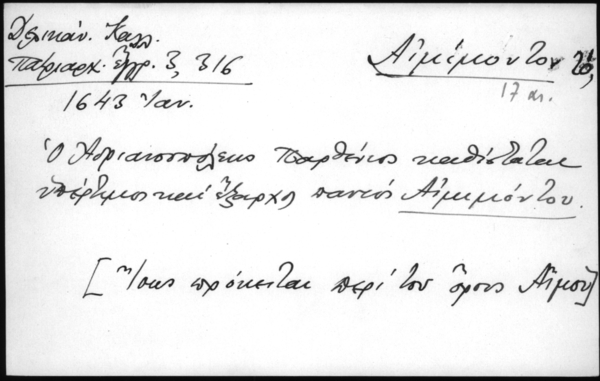 Δελικάν. Καλλ.
πατριαρχ. ἔγγρ. 3, 316
Αἱμίμοντον τό,
1643 Ἰαν.
17 αι.
Ὁ Ἀδριανουπόλεως Παρθένιος καθίσταται
ὑπέρτιμος καὶ ἔξαρχος παντὸς Αἱμιμόντου.
[Ἴσως πρόκειται περὶ τοῦ ὄρους Αἵμου]